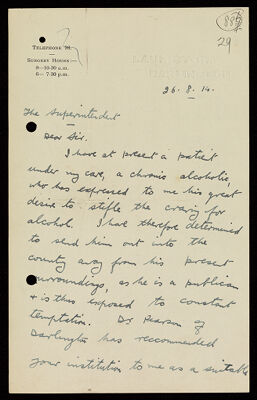 TELEPHONE
SURGERY HOURS—
8—10-30 a.m.
6—7-30 p.m.
29
26. 8. 14.
The Superintendent
Dear Sir.
I have at present a patient
under my care, a chronic alcoholic,
who has expressed to me his great
desire to stifle the craving for
alcohol. I have therefore determined
to send him out into the
country away from his present
surroundings, as he is a publican
& is thus exposed to constant
temptation. Dr Pearson of
Darlington has reccomended
your institution to me as a suitable